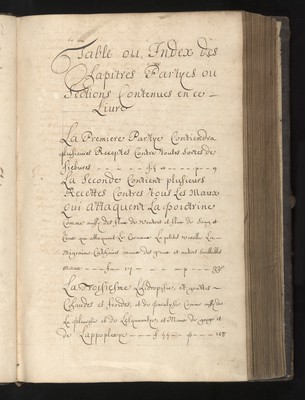 Table ou Index des
Chapitres Partyes ou
Sections Contenues en ce
Liure
La Premiere Partye Contiendra
plusieurs Receptes Contre toutes sortes de
fiebures
La Seconde Contient plusieurs
Recettes Contres tous Les Maux
qui attaquent La poictrine
Comme aussy des flux de Ventre et flux de Sang et
Ceux qui attaquent Le Cerueau La petite verolle La
Migraine Catharres maux des yeux et autres semblables
maux
La Troisiesme L'hidropisie, et gouttes
Chaudes et froides, et de paralysie Comme aussy de
La pleuresie et de L'esquinancie, et Maux de gorge et
de L'appoplexye